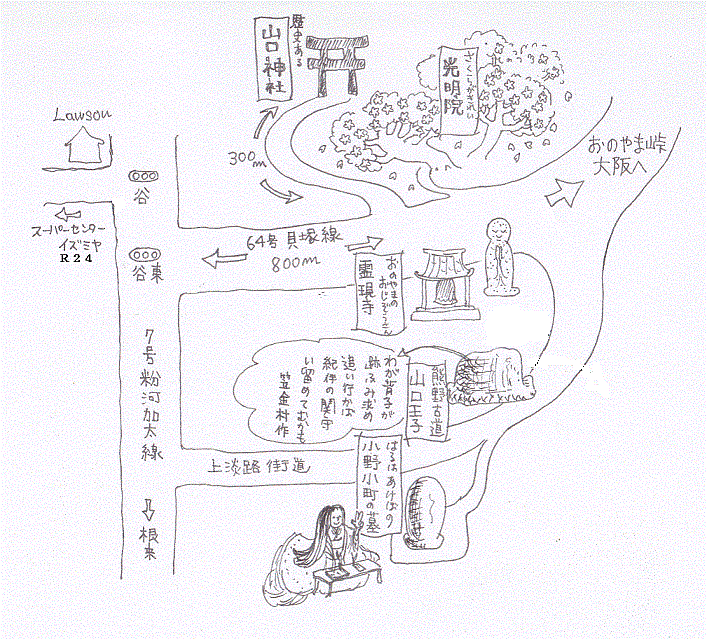 歴史ある
山口神社
さくらがきれい
光明院
Lawson
300m
谷
おのやま峠
大阪へ
スーパーセンター
イズミヤ
R24
谷東
64号貝塚線
800m
おのやまの
おじぞうさん
霊現寺
7号粉河加太線
わが背子が
跡ふみ求め
追い行かば
紀伊の関守
い留めてむかも
笠金村作
熊野古道
山口王子
上淡路街道
はるはあけぼの
小野小町の墓
根来